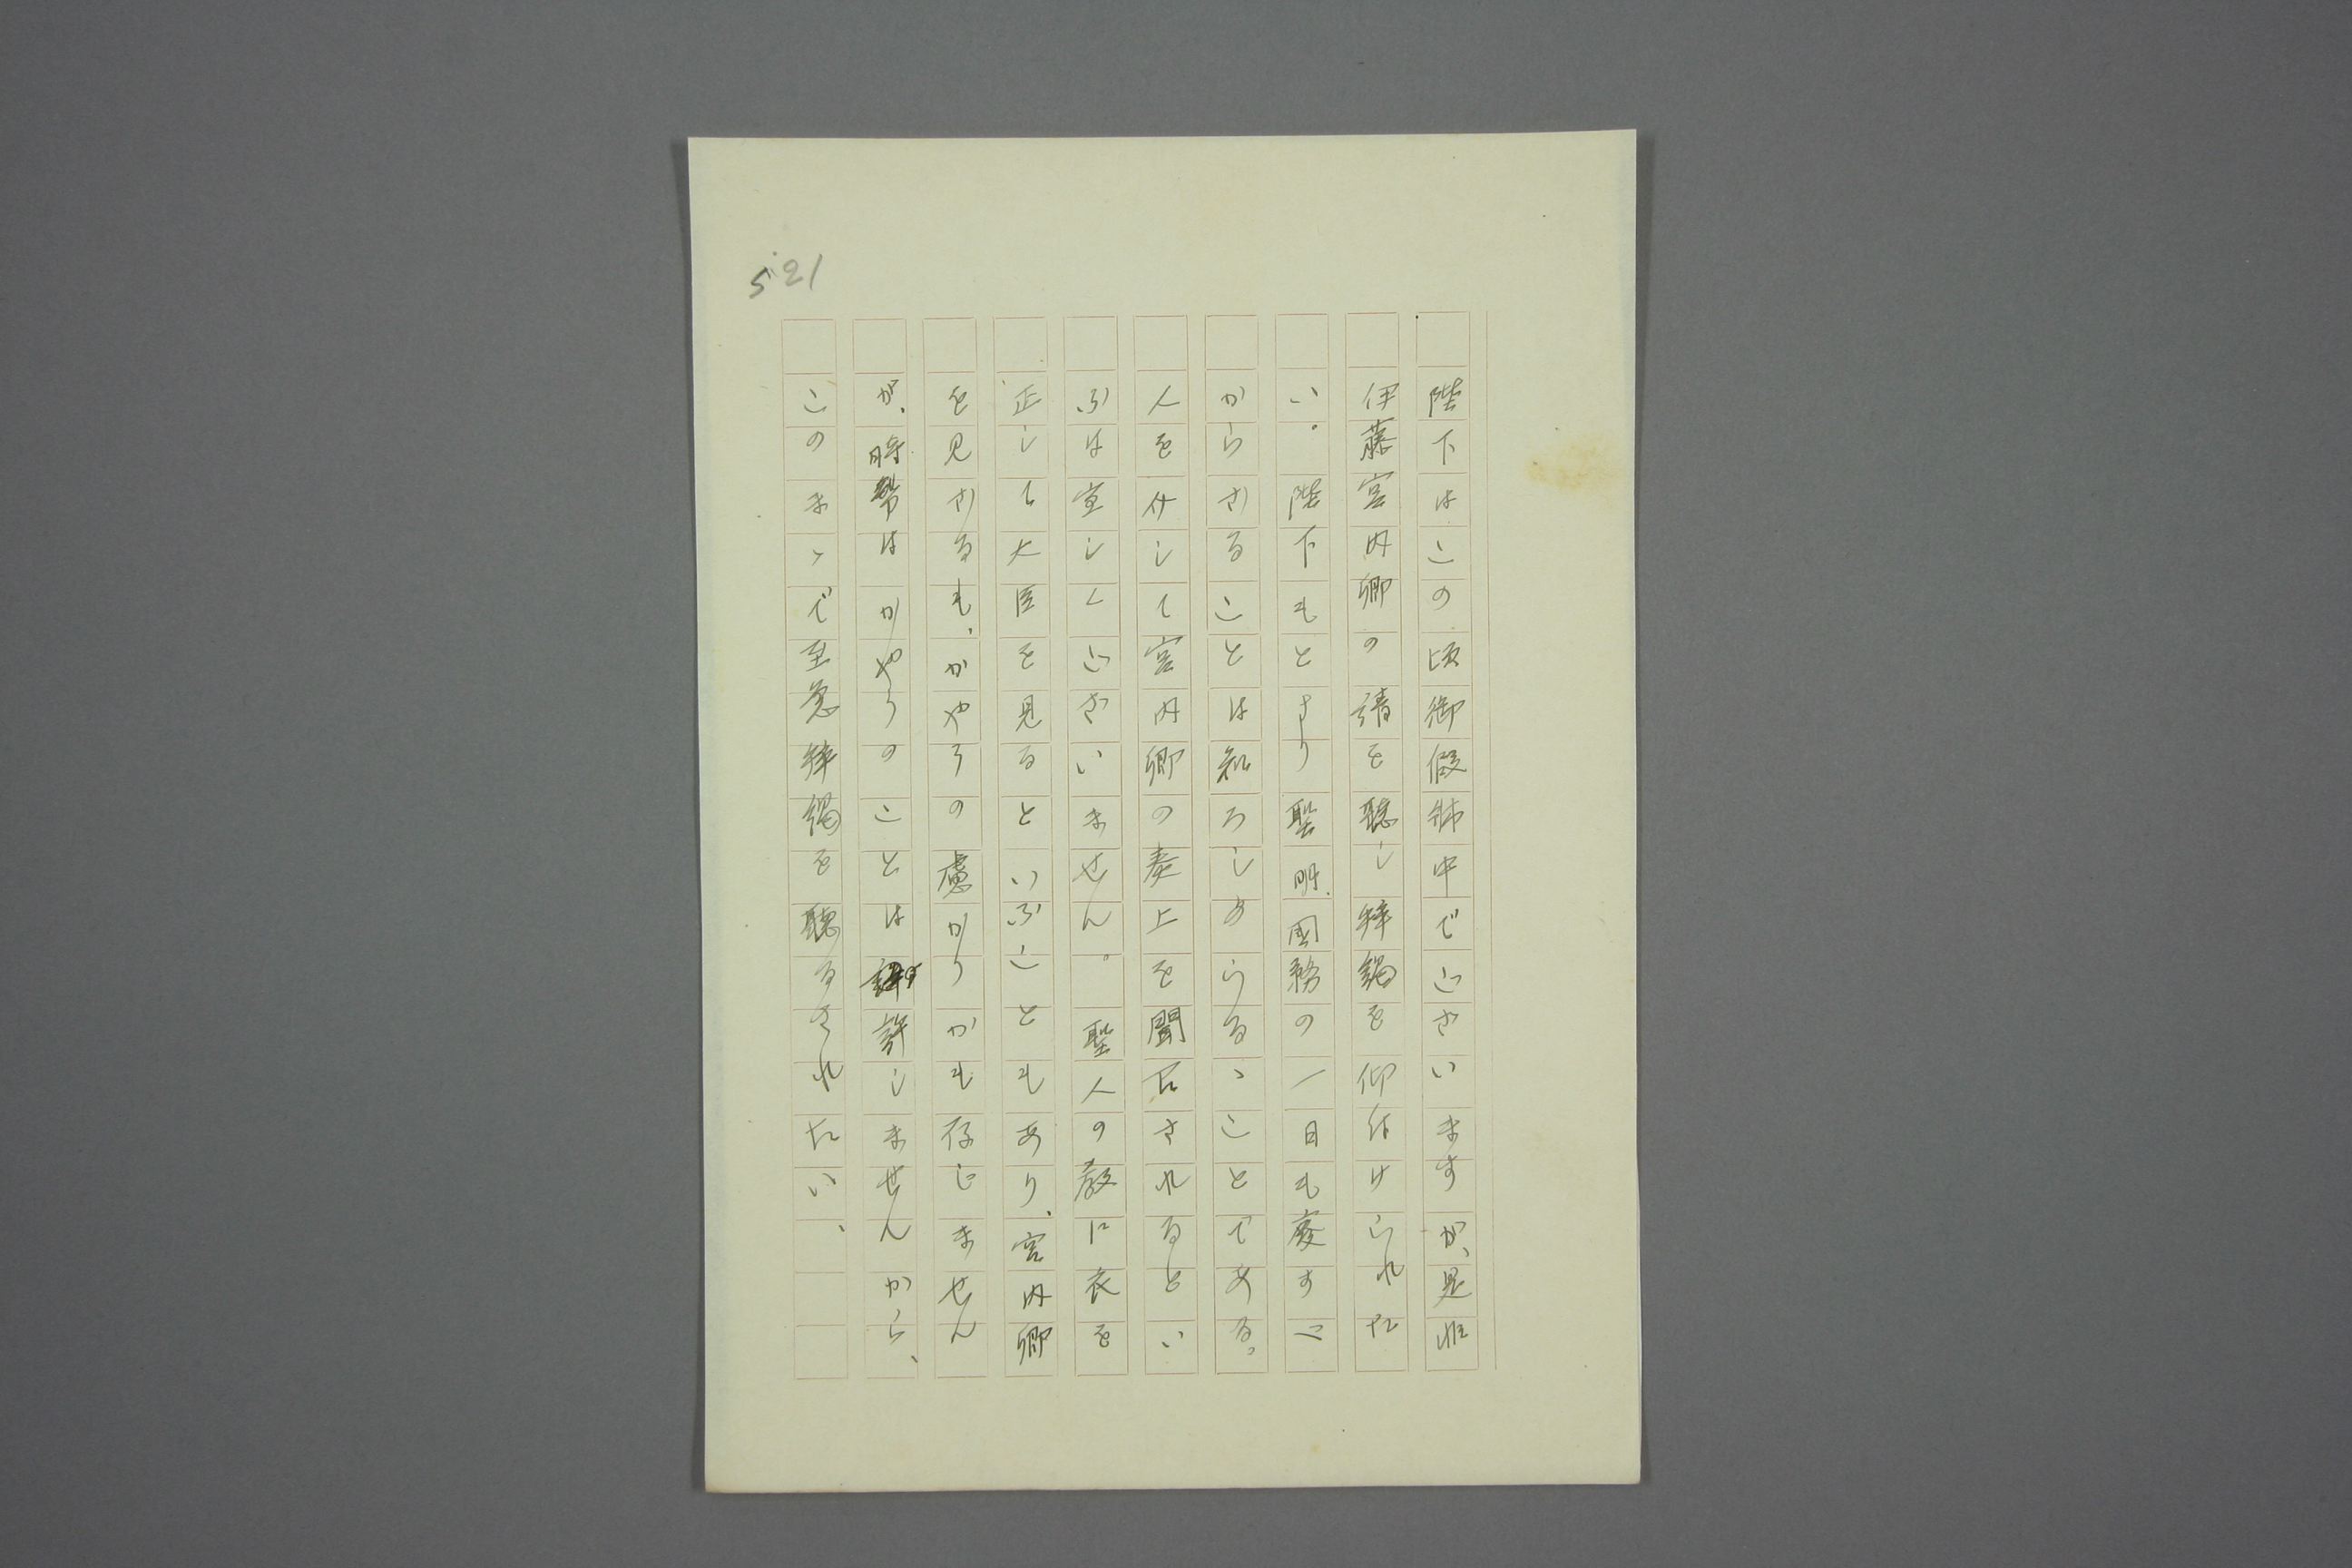 521
陛下はこの頃御假中でございますが、是非
伊藤宮内卿の請を聽し拝謁を仰付けられた
い。陛下もとより聖明、國務の一日も廢すべ
からざることは知ろしめらるゝことである。
人を介して宮内卿の奏上を聞召されるとい
ふは宜しくございません。聖人の教に衣を
正して大臣を見るといふこともあり、宮内卿
を見ざるも、かやうの慮かりかも存じません
が、時勢はかやうのことは許しませんから、
このまゝで至急拝謁を聽るされたい、